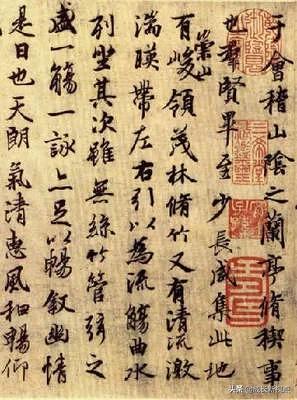 于會稽山陰之蘭亭脩稧事
也群賢畢至少長咸集此地
有崇山峻領茂林脩竹又有清流激
湍暎帶左右引以為流觴曲水
列坐其次雖無絲竹管弦之
盛一觴一詠亦足以暢敘幽情
是日也天朗氣清惠風和暢仰